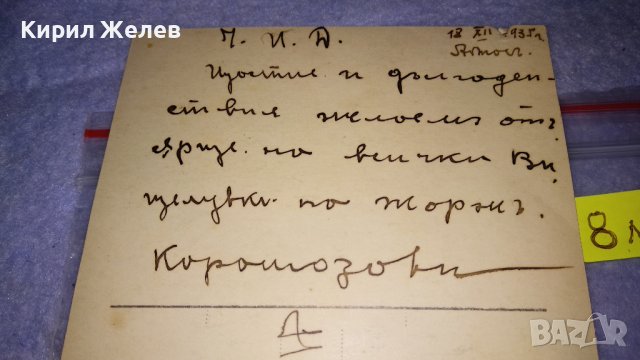 Кирил Желев
Ч. И. Д.
18 XII 1935 г.
Щастие и дългоден-
ствие желаем отъ
сърце на всички Ви.
целувки на Жоржъ.
Карамозови
8
BAZAR